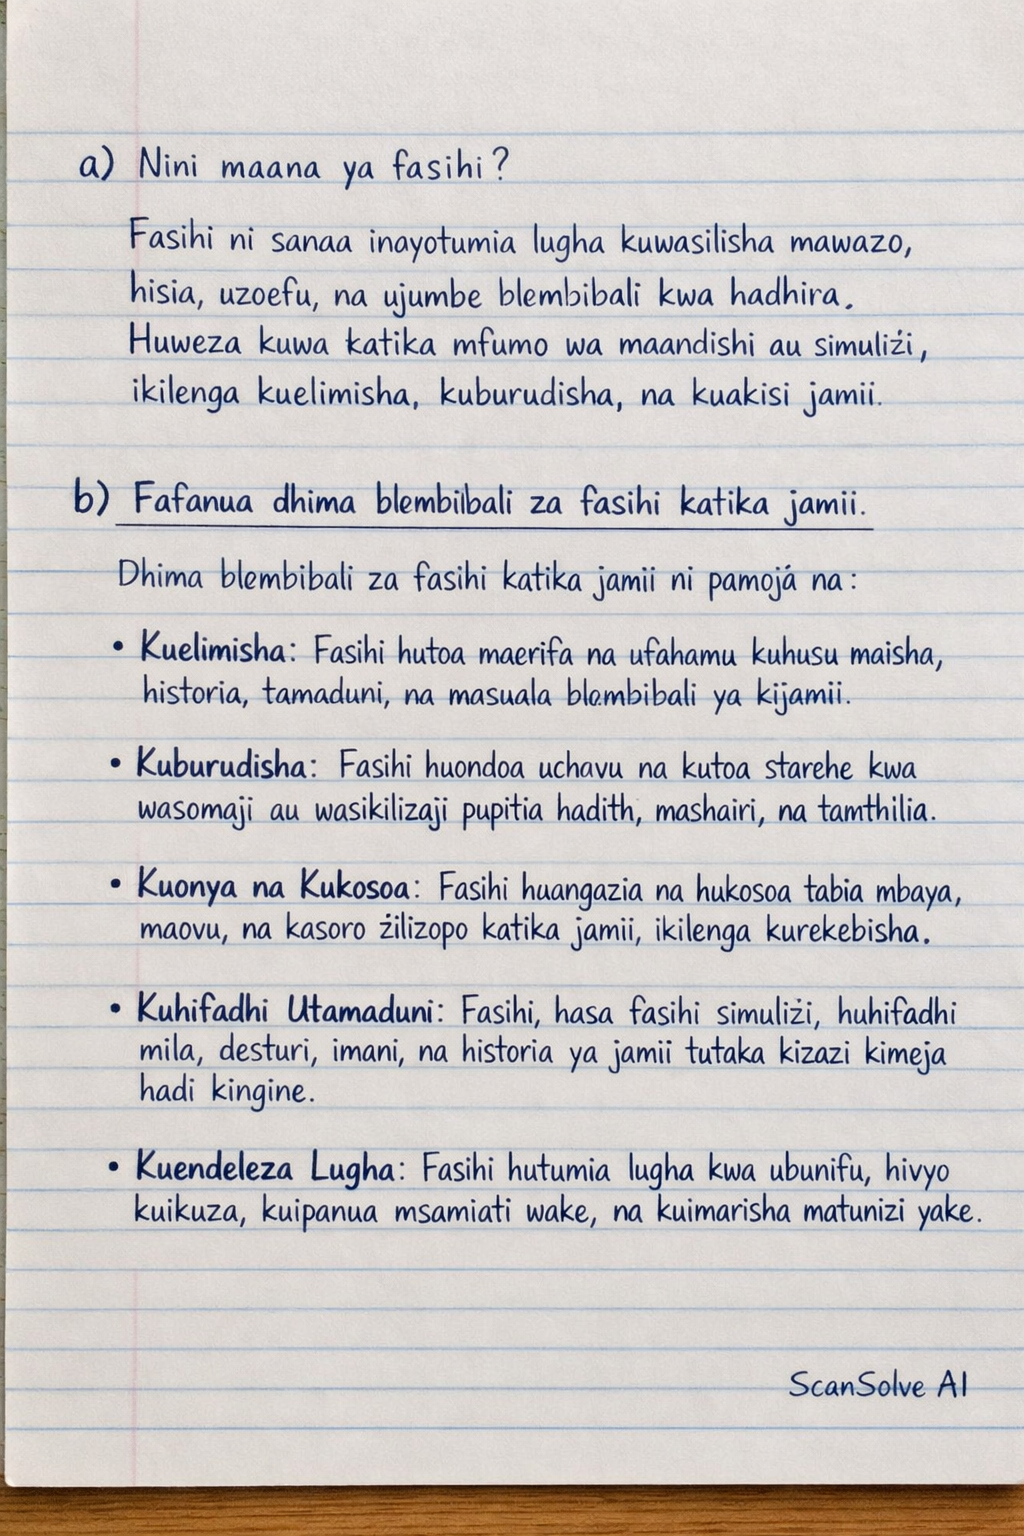 a) Nini maana ya fasihi?
Fasihi ni sanaa inayotumia lugha kuwasilisha mawazo,
hisia, uzoefu, na ujumbe blembibali kwa hadhira.
Huweza kuwa katika mfumo wa maandishi au simuliźi,
ikilenga kuelimisha, kuburudisha, na kuakisi jamii.
b) Fafanua dhima blembilbali za fasihi katika jamii.
Dhima blembibali za fasihi katika jamii ni pamojá na:
• Kuelimisha: Fasihi hutoa maerifa na ufahamu kuhusu maisha,
historia, tamaduni, na masuala blembibali ya kijamii.
• Kuburudisha: Fasihi huondoa uchavu na kutoa starehe kwa
wasomaji au wasikilizaji pupitia hadith, mashairi, na tamthilia.
• Kuonya na Kukosoa: Fasihi huangazia na hukosoa tabia mbaya,
maovu, na kasoro żilizopo katika jamii, ikilenga kurekebisha.
• Kuhifadhi Utamaduni: Fasihi, hasa fasihi simuliżi, huhifadhi
mila, desturi, imani, na historia ya jamii tutaka kizazi kimeja
hadi kingine.
• Kuendeleza Lugha: Fasihi hutumia lugha kwa ubunifu, hivyo
kuikuza, kuipanua msamiati wake, na kuimarisha matunizi yake.
ScanSolve AI